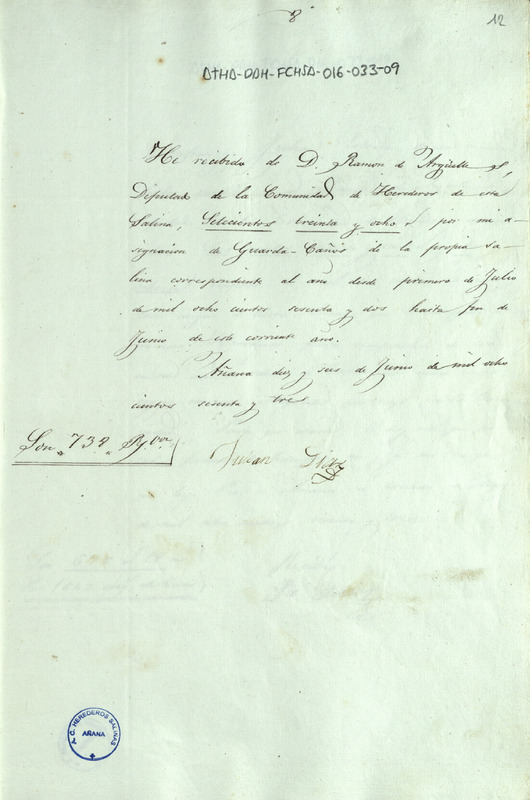 8
12
ATHA-DAH-FCHSA-016-033-09
He recibido de D. Ramon de Argüelles,
Diputado de la Comunidad de Herederos de esta
Salina, Setecientos treinta y ocho r. por mi a-
signacion de Guarda-Caños de la propia sa-
lina correspondiente al año desde primero de Julio
de mil ocho cientos sesenta y dos hasta fin de
Junio de este corriente año.
Añana diez y seis de Junio de mil ocho
cientos sesenta y tres
Son "738" Rs. von.
Julian
A.C. HEREDEROS SALINAS
AÑANA